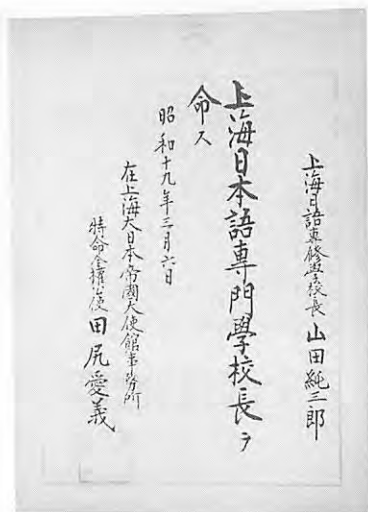 上海日語專修學校長 山田純三郎
上海日本語專門學校長ヲ
命ス
昭和十九年三月六日
在上海大日本帝國大使館事務所
特命全權公使 田尻愛義